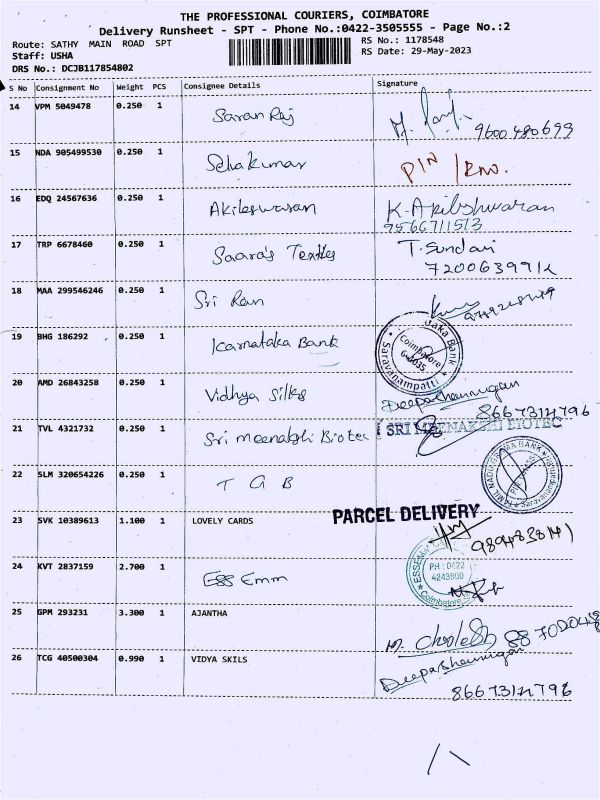 THE PROFESSIONAL COURIERS, COIMBATORE
Delivery Runsheet - SPT - Phone No.:0422-3505555 - Page No.:2
Route: SATHY MAIN ROAD SPT
RS No.: 1178548
Staff: USHA
RS Date: 29-May-2023
DRS No.: DCJB117854802
S No Consignment No Weight PCS Consignee Details Signature
14 VPM 5049478 0.250 1 Saran Raj
9600480699
15 NDA 905499530 0.250 1 Sathakumar PIN /RNO.
16 EDQ 24567636 0.250 1 Akileswaran K. Akileshwaran
9566711513
17 TRP 6678460 0.250 1 Saara's Textiles T. Sundari
7200639912
18 MAA 299546246 0.250 1 Sri Ram
19 BHG 186292 0.250 1 Karnataka Bank
Karnataka Bank
Coimbatore
Saravanampatti
20 AMD 26843258 0.250 1 Vidhya Silks Deepashanmugan
8667314796
21 TVL 4321732 0.250 1 Sri Meenakshi Biotec SRI MEENAKSHI BIOTEC
22 SLM 320654226 0.250 1 T G B
TAMIL NADU GRAMA BANK
23 SVK 10389613 1.100 1 LOVELY CARDS PARCEL DELIVERY
24 KVT 2837159 2.700 1 Ess Emm
PH : 0422
4243800
Coimbatore
25 GPM 293231 3.300 1 AJANTHA
26 TCG 40500304 0.990 1 VIDYA SKILS Deepashanmugan
8667314796